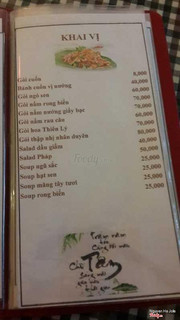 KHAI VỊ
Gỏi cuốn 8,000
Bánh cuốn vị nướng 40,000
Gỏi ngó sen 60,000
Gỏi nấm rong biển 70,000
Gỏi nấm nướng giấy bạc 70,000
Gỏi nấm rau câu 70,000
Gỏi hoa Thiên Lý 60,000
Gỏi thập nhị nhân duyên 80,000
Salad dầu giấm 40,000
Salad Pháp 50,000
Soup ngũ sắc 25,000
Soup hạt sen 25,000
Soup măng tây tươi 25,000
Soup rong biển 25,000
Trăm năm
Tâm